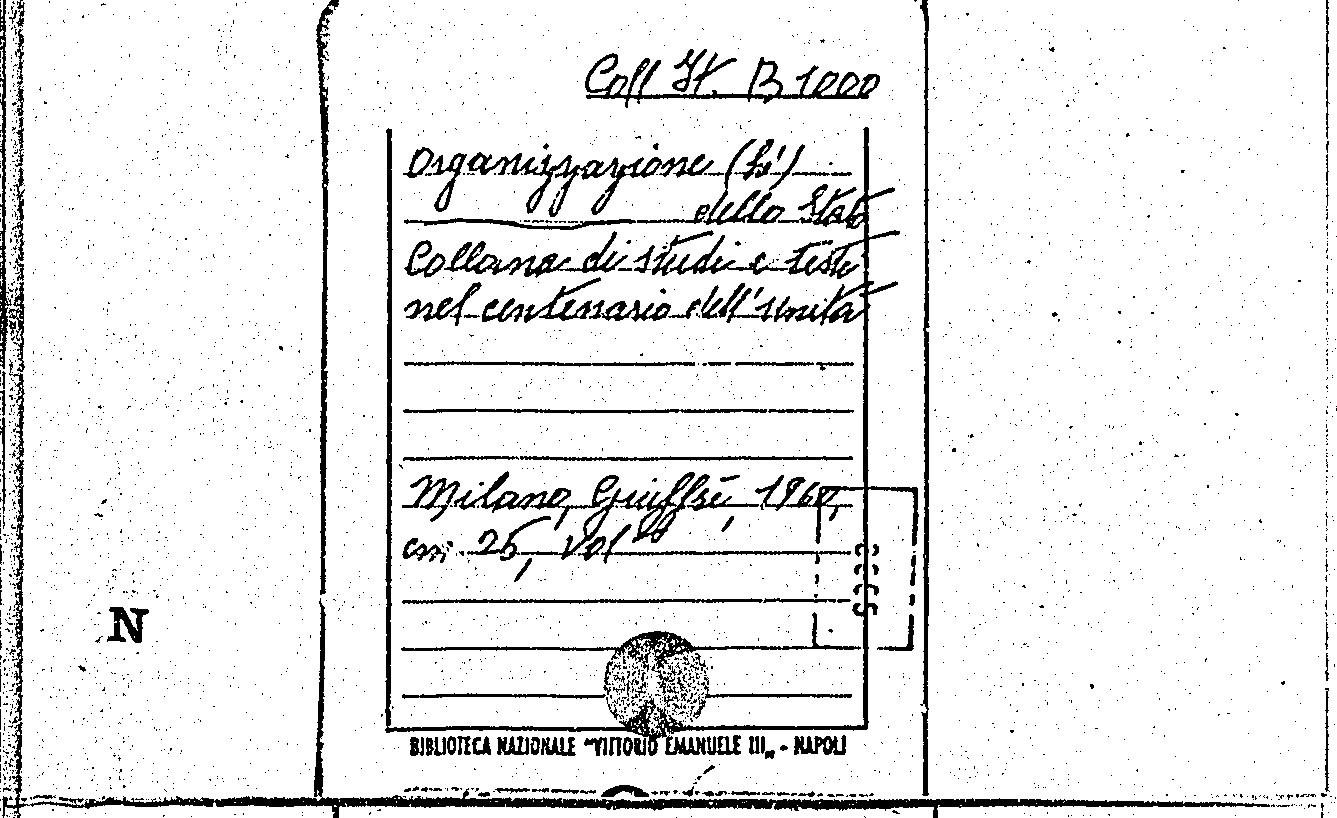 Coll It. B 1000
Organizzazione (L')
dello Stato
Collana di studi e testi
nel centenario dell'Unità
Milano, Giuffrè, 1960,
cm. 25, vol
N
BIBLIOTECA NAZIONALE "VITTORIO EMANUELE III„ - NAPOLI